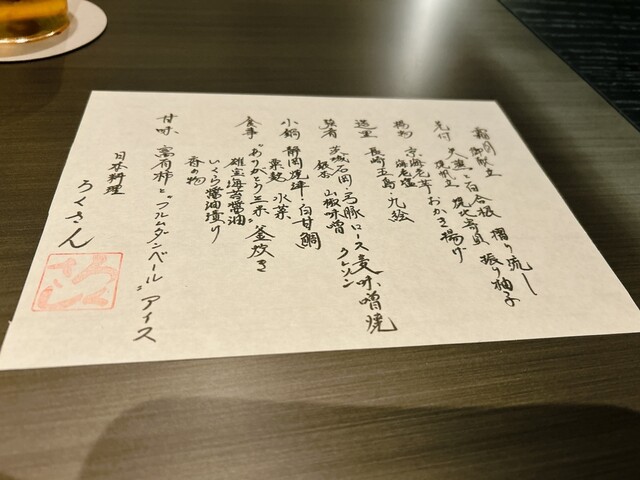 霜月 御献立
先付 天蕪と百合根 摺り流し
焼帆立 焼北寄貝 振り柚子
揚物 京海老芋 おかき揚げ
海老塩
造里 長崎五島・九絵
強肴 茨城石岡・弓豚ロース麦味噌焼
銀杏 山椒味噌 クレソン
小鍋 静岡焼津・白甘鯛
粟麩 水菜
食事 "ありがとう三禾"釜炊き
雄宝海苔醤油
いくら醤油漬り
香の物
甘味 富有柿と"フルムダンベール"アイス
日本料理
ろくさん
ろくさん